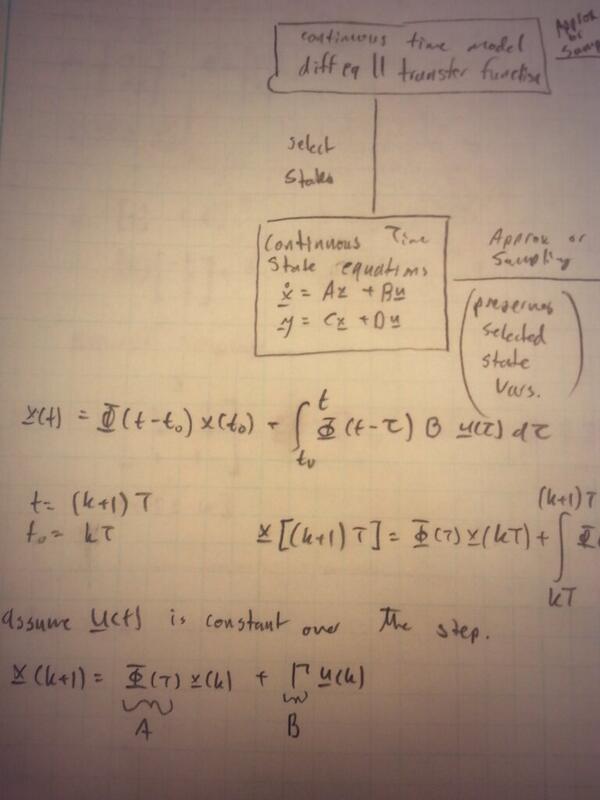 continuous time model
diff eq || transfer function
Approx
or
Samp
select
States
Continuous Time
State equations
ẋ = Ax + Bu
y = Cx + Du
Approx or
Sampling
(preserves
selected
state
vars.)
x(t) = Φ(t-t₀) x(t₀) + ∫ₜ₀ᵗ Φ(t-τ) B u(τ) dτ
t = (k+1)T
t₀ = kT
x[(k+1)T] = Φ(T) x(kT) + ∫ₖₜ⁽ᵏ⁺¹⁾ᵀ Φ(
assume u(t) is constant over the step.
x(k+1) = Φ(T) x(k) + Γ u(k)
A B